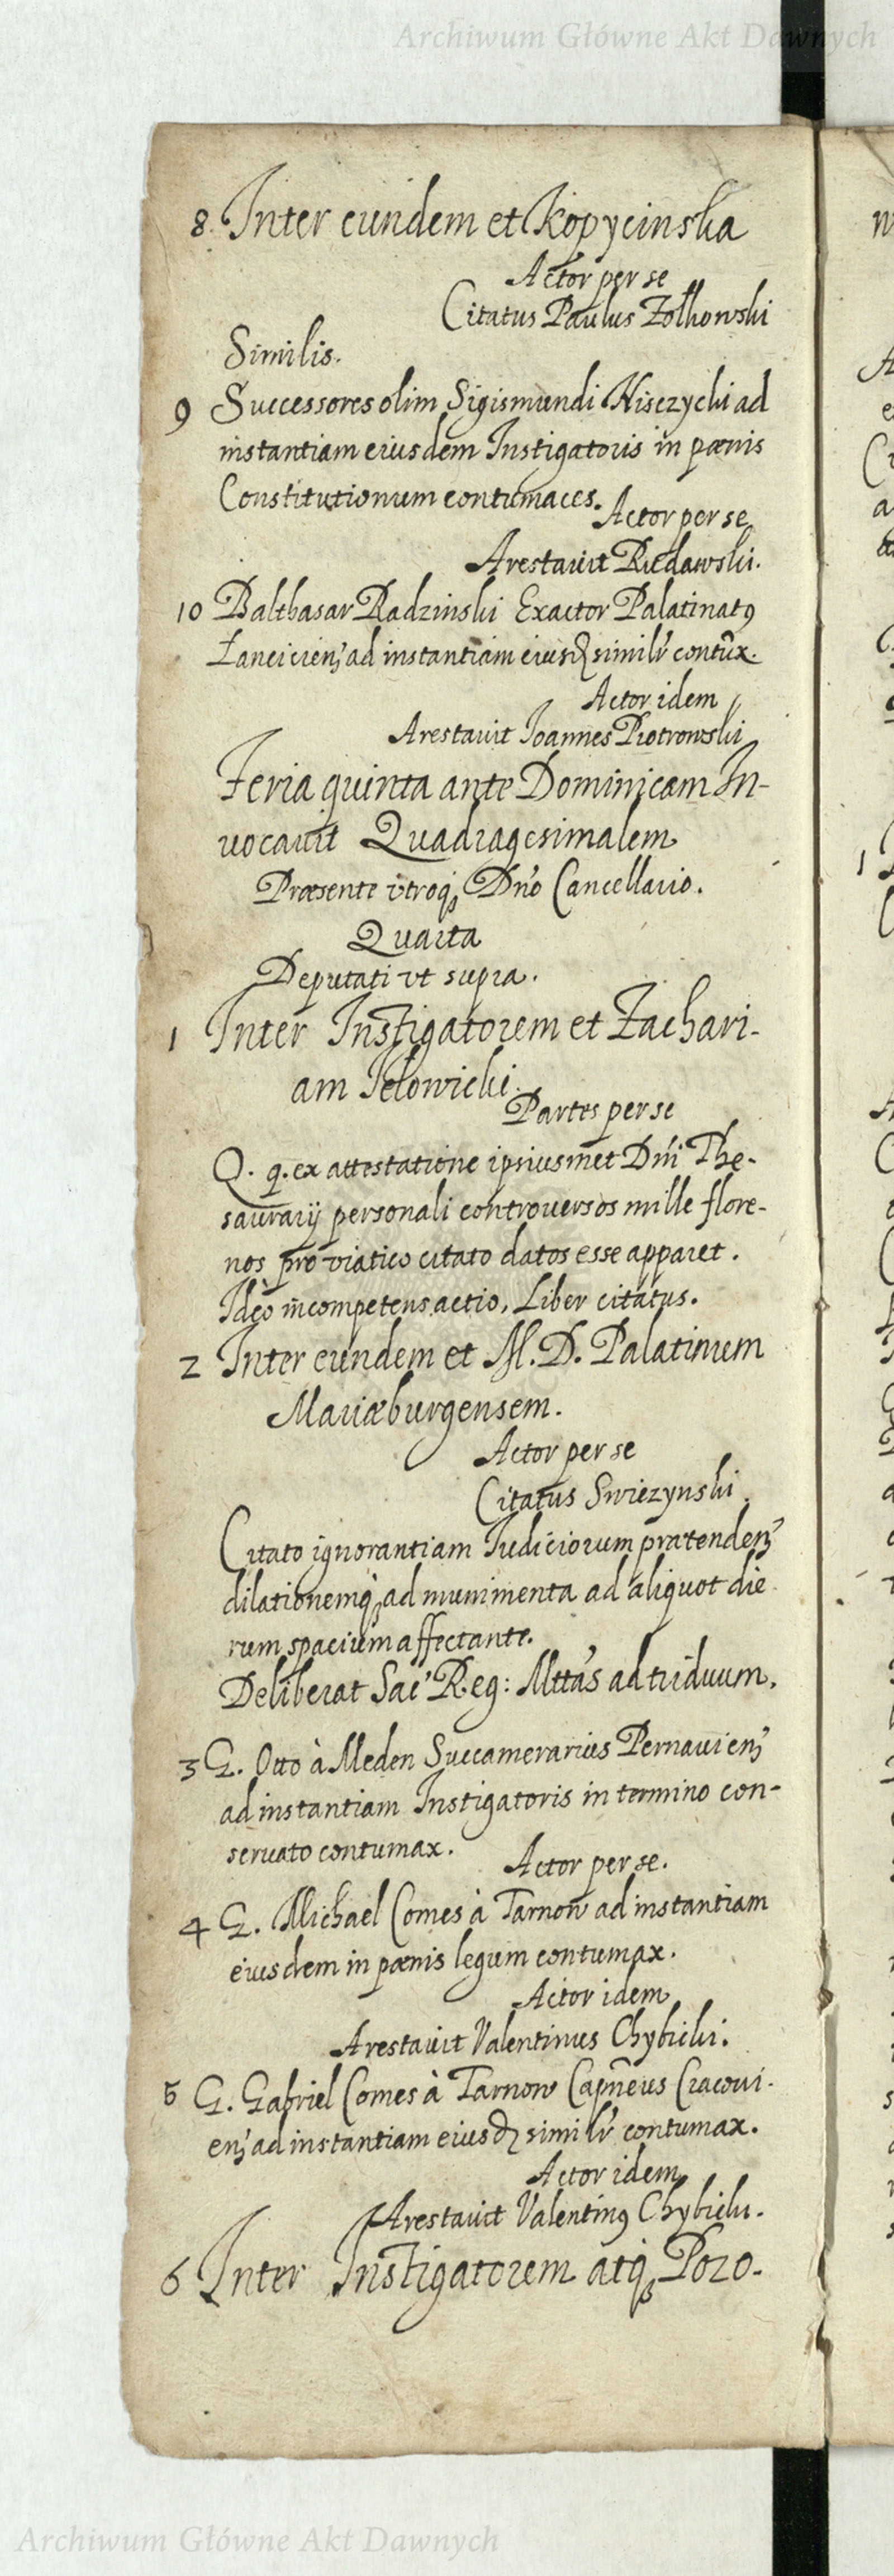 Archiwum Główne Akt Dawnych
8. Inter eundem et Kopycinska
Actor per se
Citatus Paulus Zolkowski
Similis.
9 Successores olim Sigismundi Hisczycki ad
instantiam eiusdem Instigatoris in pænis
Constitutionum contumaces.
Actor per se
Arestauit Rudawski.
10 Balthasar Radzinski Exactor Palatinatꝯ
Lancicien̄ ad instantiam eiusd simili'r contūx.
Actor idem
Arestauit Joannes Piotrowski
Feria quinta ante Dominicam In-
uocauit Quadragesimalem
Præsente vtroq; Dn̄o Cancellario.
Quarta
Deputati vt supra.
1 Inter Instigatorem et Zachari-
am Jelowicki.
Partes per se
Q. q. ex attestatione ipsiusmet Dn̄i The-
saurarij personali controuersos mille flore-
nos pro viatico citato datos esse apparet.
Ideo incompetens actio, Liber citatus.
2 Inter eundem et M. D. Palatinum
Mariæburgensem.
Actor per se
Citatus Swiezynski.
Citato ignorantiam Iudiciorum prætenden̄
dilationemq; ad munimenta ad aliquot die
rum spacium affectante.
Deliberat Sac' Reg: Mttas ad triduum.
3 G. Otto à Meden Succamerarius Pernauien̄
ad instantiam Instigatoris in termino con-
seruato contumax.
Actor per se.
4 G. Michael Comes à Tarnow ad instantiam
eiusdem in pænis legum contumax.
Actor idem
Arestauit Valentinus Chybicki.
5 G. Gabriel Comes à Tarnow Capn̄eus Cracoui-
en̄ ad instantiam eiusd simili'r contumax.
Actor idem
Arestauit Valentinꝯ Chybicki.
6 Inter Instigatorem atq; Pozo-
Archiwum Główne Akt Dawnych